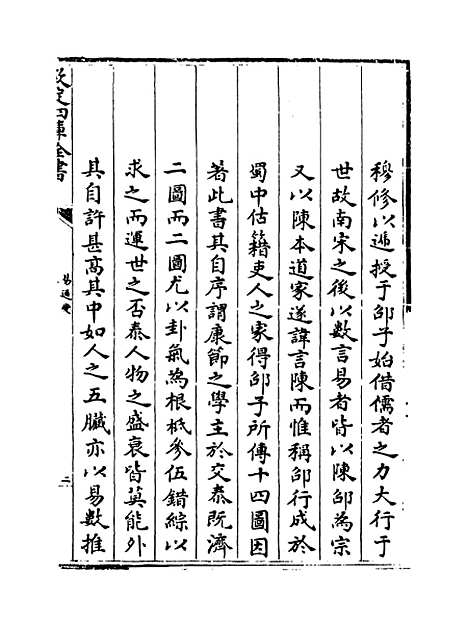 穆修以遞授于邵子始借儒者之力大行于
世故南宋之後以數言易者皆以陳邵為宗
又以陳本道家遂諱言陳而惟稱邵行成於
蜀中估籍吏人之家得邵子所傳十四圖因
著此書其自序謂康節之學主於交泰既濟
二圖而二圖尤以卦氣為根柢參伍錯綜以
求之而運世之否泰人物之盛衰皆莫能外
其自許甚高其中如人之五臟亦以易數推
欽定四庫全書
易通變
二